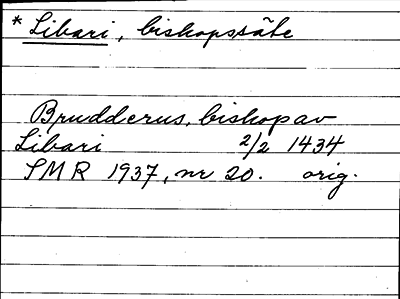 * Libari, biskopssäte
Brudderus, biskop av
Libari 2/2 1434
SMR 1937, nr 20. orig.